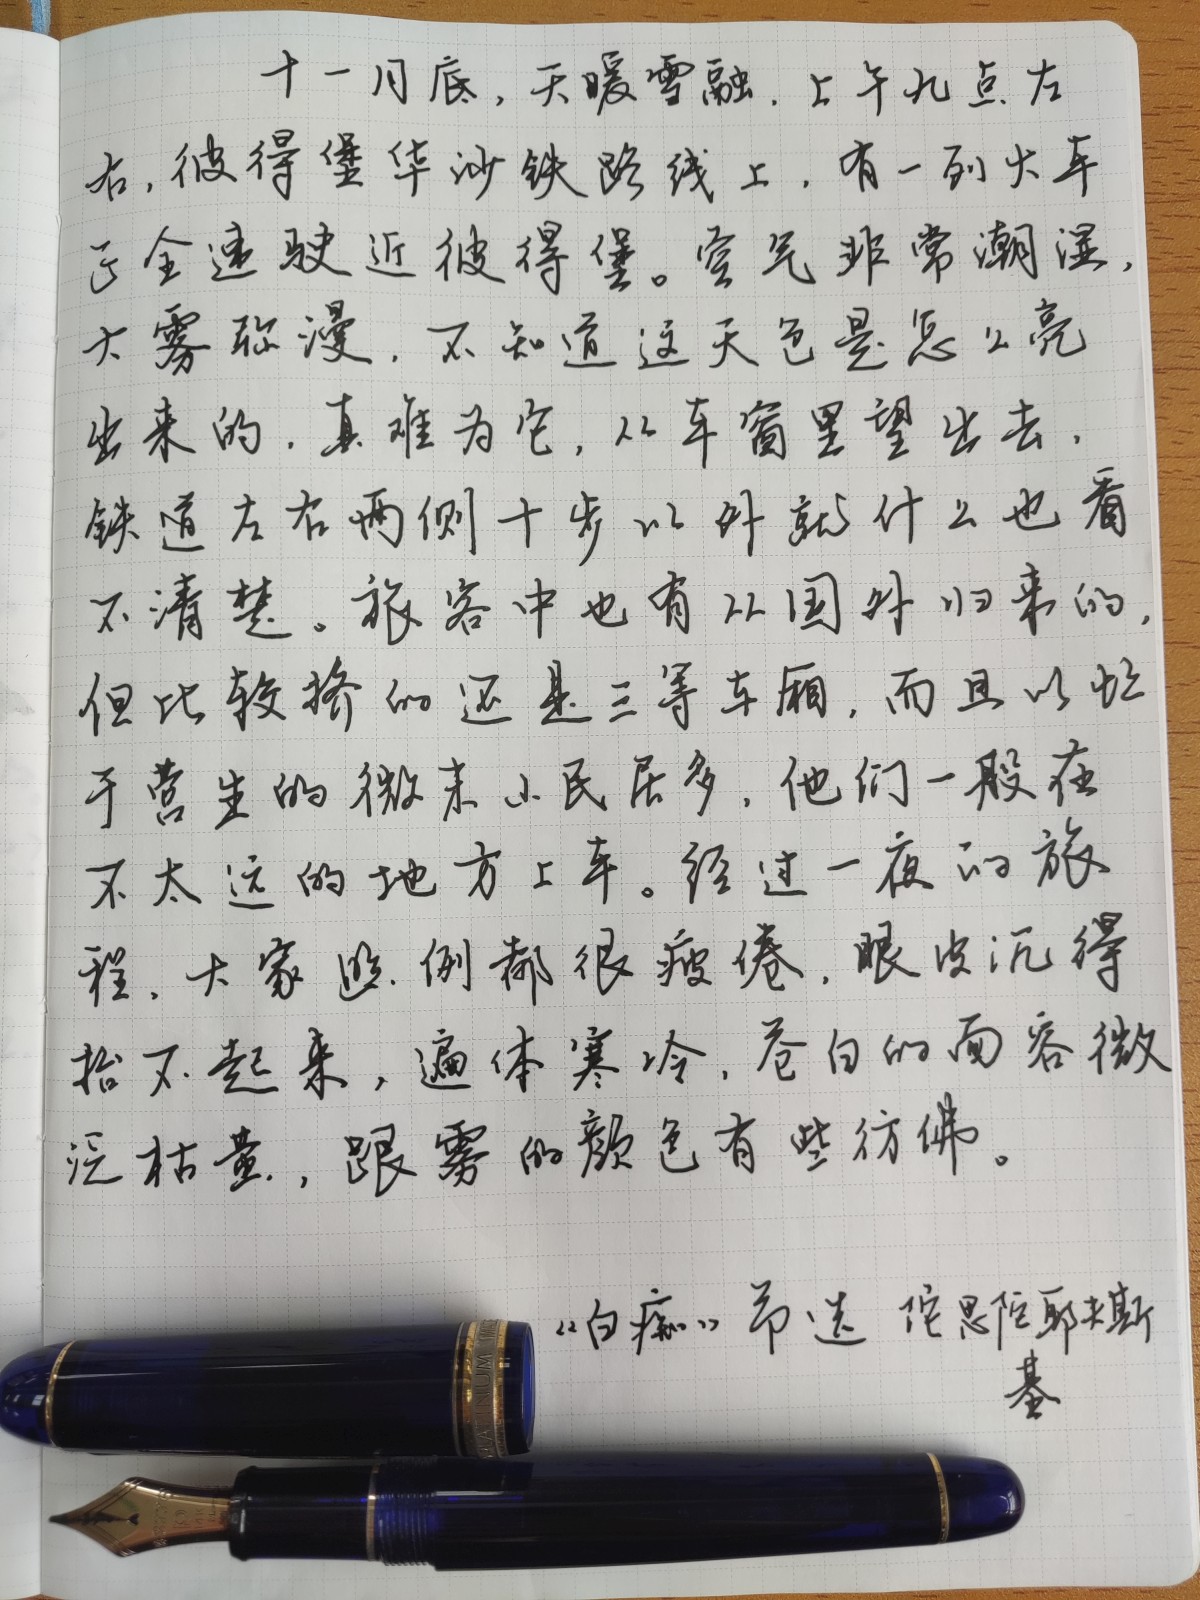 十一月底，天暖雪融。上午九点左
右，彼得堡华沙铁路线上，有一列火车
正全速驶近彼得堡。空气非常潮湿，
大雾弥漫，不知道这天色是怎么亮
出来的，真难为它，从车窗里望出去，
铁道左右两侧十步以外就什么也看
不清楚。旅客中也有从国外归来的，
但比较挤的还是三等车厢，而且以忙
于营生的微末小民居多，他们一般在
不太远的地方上车。经过一夜的旅
程，大家照例都很疲倦，眼皮沉得
抬不起来，遍体寒冷，苍白的面容微
泛枯黄，跟雾的颜色有些彷佛。
《白痴》节选 陀思陀耶夫斯
基
PLATINUM